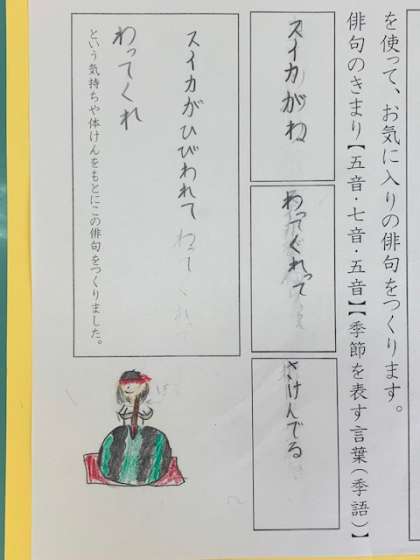 を使って、お気に入りの俳句をつくります。
俳句のきまり【五音・七音・五音】【季節を表す言葉（季語）】
スイカがね
わってくれって
さけんでる
スイカがひびわれて
わってくれ
という気持ちや体けんをもとにこの俳句をつくりました。